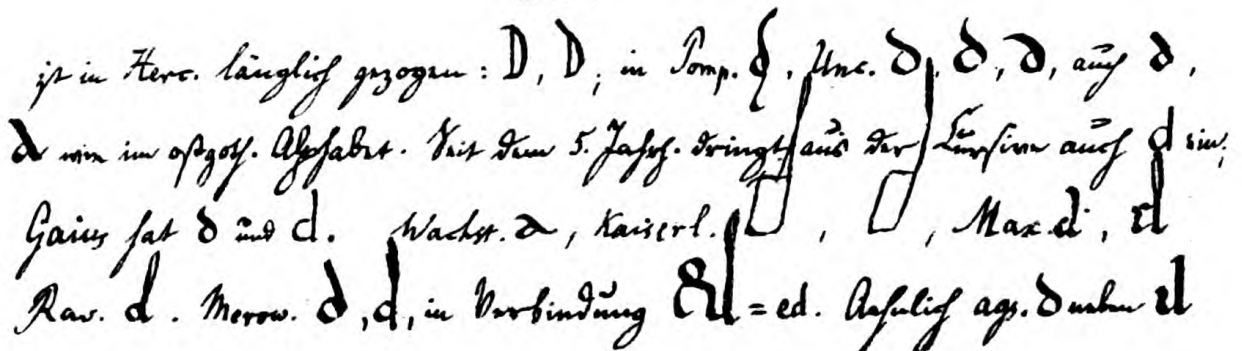 ist in Herc. länglich gezogen: D, D, in Pomp. d. Unc. d, d, d, auch d,
d wie im ostgoth. Alphabet. Seit dem 5. Jahrh. dringt aus der Cursive auch d ein;
Gaius hat d und d. Wachst. d, Kaiserl. d, d, Max. d, d
Rav. d. Merow. d, d, in Verbindung &d = ed. Aehnlich ags. d neben d